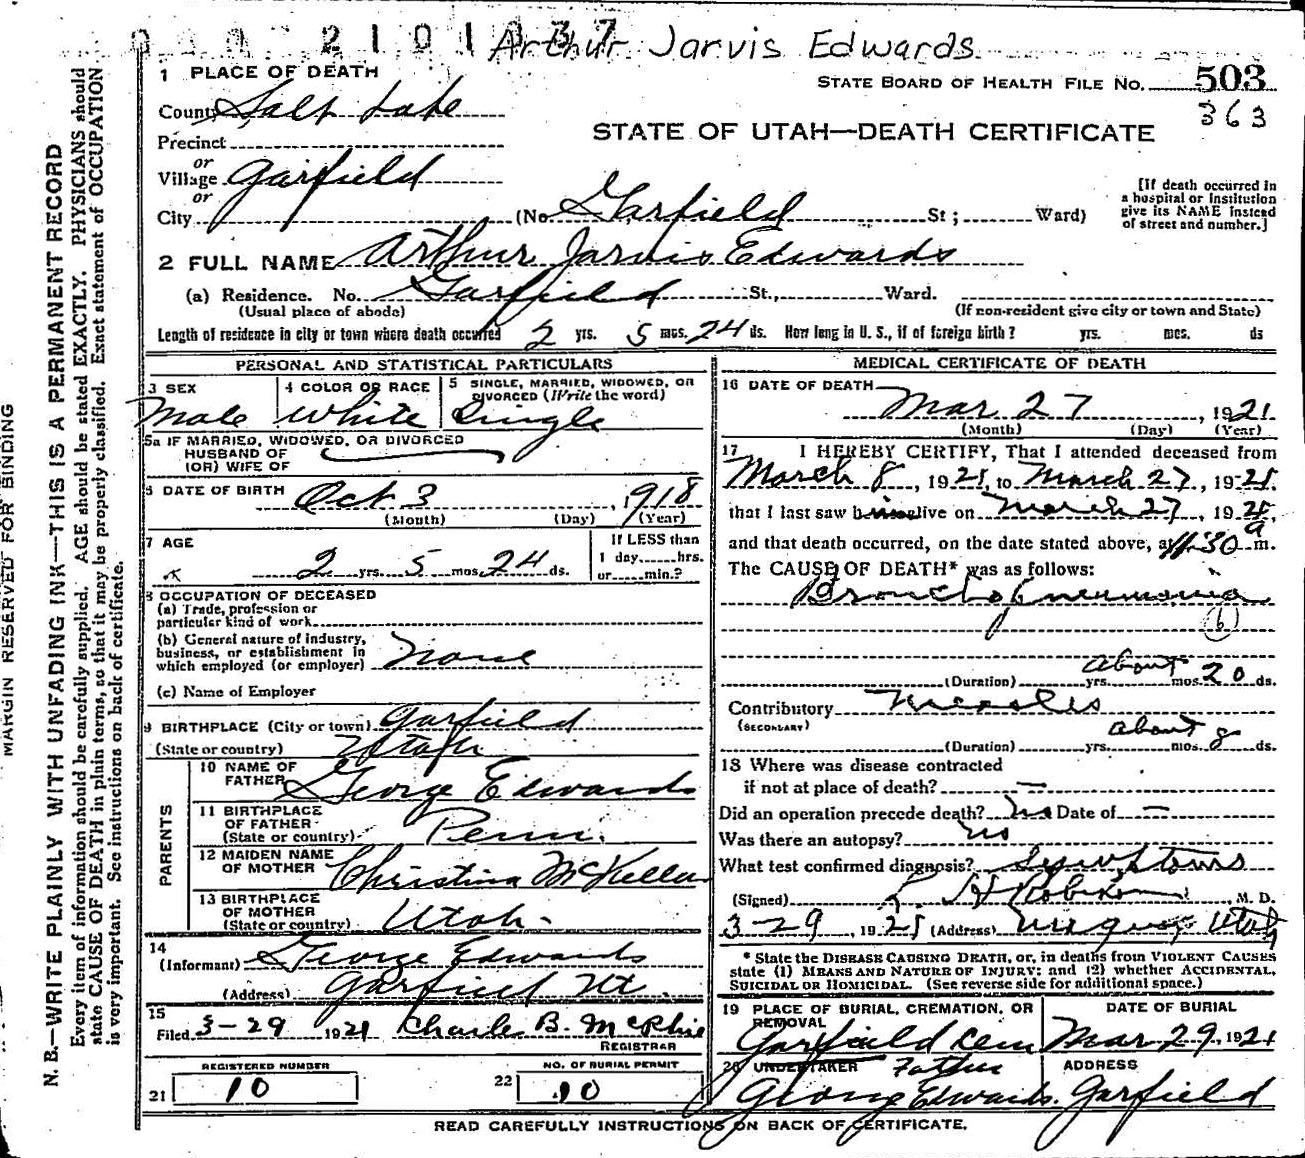 Arthur Jarvis Edwards
1 PLACE OF DEATH
STATE BOARD OF HEALTH FILE NO. 503
County Salt Lake
363
STATE OF UTAH—DEATH CERTIFICATE
Precinct
or
Village Garfield
or
City (No Garfield St; Ward)
[If death occurred in
a hospital or institution
give its NAME instead
of street and number.]
2 FULL NAME Arthur Jarvis Edwards
(a) Residence. No. Garfield St., Ward.
(Usual place of abode) (If non-resident give city or town and State)
Length of residence in city or town where death occurred 2 yrs. 5 mos. 24 ds. How long in U. S., if of foreign birth? yrs. mos. ds
PERSONAL AND STATISTICAL PARTICULARS
3 SEX 4 COLOR OR RACE 5 SINGLE, MARRIED, WIDOWED, OR
DIVORCED (Write the word)
Male White Single
5a IF MARRIED, WIDOWED, OR DIVORCED
HUSBAND OF
(OR) WIFE OF
6 DATE OF BIRTH Oct 3, 1918
(Month) (Day) (Year)
7 AGE
If LESS than
1 day hrs.
2 yrs. 5 mos. 24 ds. or min.?
8 OCCUPATION OF DECEASED
(a) Trade, profession or
particular kind of work
(b) General nature of industry,
business, or establishment in
which employed (or employer) None
(c) Name of Employer
9 BIRTHPLACE (City or town) Garfield
(State or country) Utah
PARENTS
10 NAME OF
FATHER George Edwards
11 BIRTHPLACE
OF FATHER
(State or country) Penn.
12 MAIDEN NAME
OF MOTHER Christina McKellar
13 BIRTHPLACE
OF MOTHER
(State or country) Utah.
14
(Informant) George Edwards
(Address) Garfield Ut.
15
Filed 3-29 1921 Charles B. McPhie
REGISTRAR
REGISTERED NUMBER NO. OF BURIAL PERMIT
21 10 22 10
MEDICAL CERTIFICATE OF DEATH
16 DATE OF DEATH
Mar 27, 1921
(Month) (Day) (Year)
17 I HEREBY CERTIFY, That I attended deceased from
March 8, 1921, to March 27, 1921.
that I last saw him alive on March 27, 1921,
and that death occurred, on the date stated above, at 11.30 a m.
The CAUSE OF DEATH* was as follows:
Broncho pneumonia
(6)
(Duration) yrs. about mos. 20 ds.
Contributory Measles
(SECONDARY)
(Duration) yrs. about mos. 8 ds.
18 Where was disease contracted
if not at place of death? —
Did an operation precede death? No Date of —
Was there an autopsy? no
What test confirmed diagnosis? Symptoms
(Signed) H Robinson, M. D.
3-29, 1921 (Address) Utah
* State the DISEASE CAUSING DEATH, or, in deaths from VIOLENT CAUSES
state (1) MEANS AND NATURE OF INJURY; and (2) whether ACCIDENTAL,
SUICIDAL OR HOMICIDAL. (See reverse side for additional space.)
19 PLACE OF BURIAL, CREMATION, OR
REMOVAL
DATE OF BURIAL
Garfield Cem Mar 29, 1921
20 UNDERTAKER Father ADDRESS
George Edwards. Garfield
READ CAREFULLY INSTRUCTIONS ON BACK OF CERTIFICATE.
MARGIN RESERVED FOR BINDING
N. B.—WRITE PLAINLY WITH UNFADING INK—THIS IS A PERMANENT RECORD
Every item of information should be carefully supplied. AGE should be stated EXACTLY. PHYSICIANS should
state CAUSE OF DEATH in plain terms, so that it may be properly classified. Exact statement of OCCUPATION
is very important. See instructions on back of certificate.